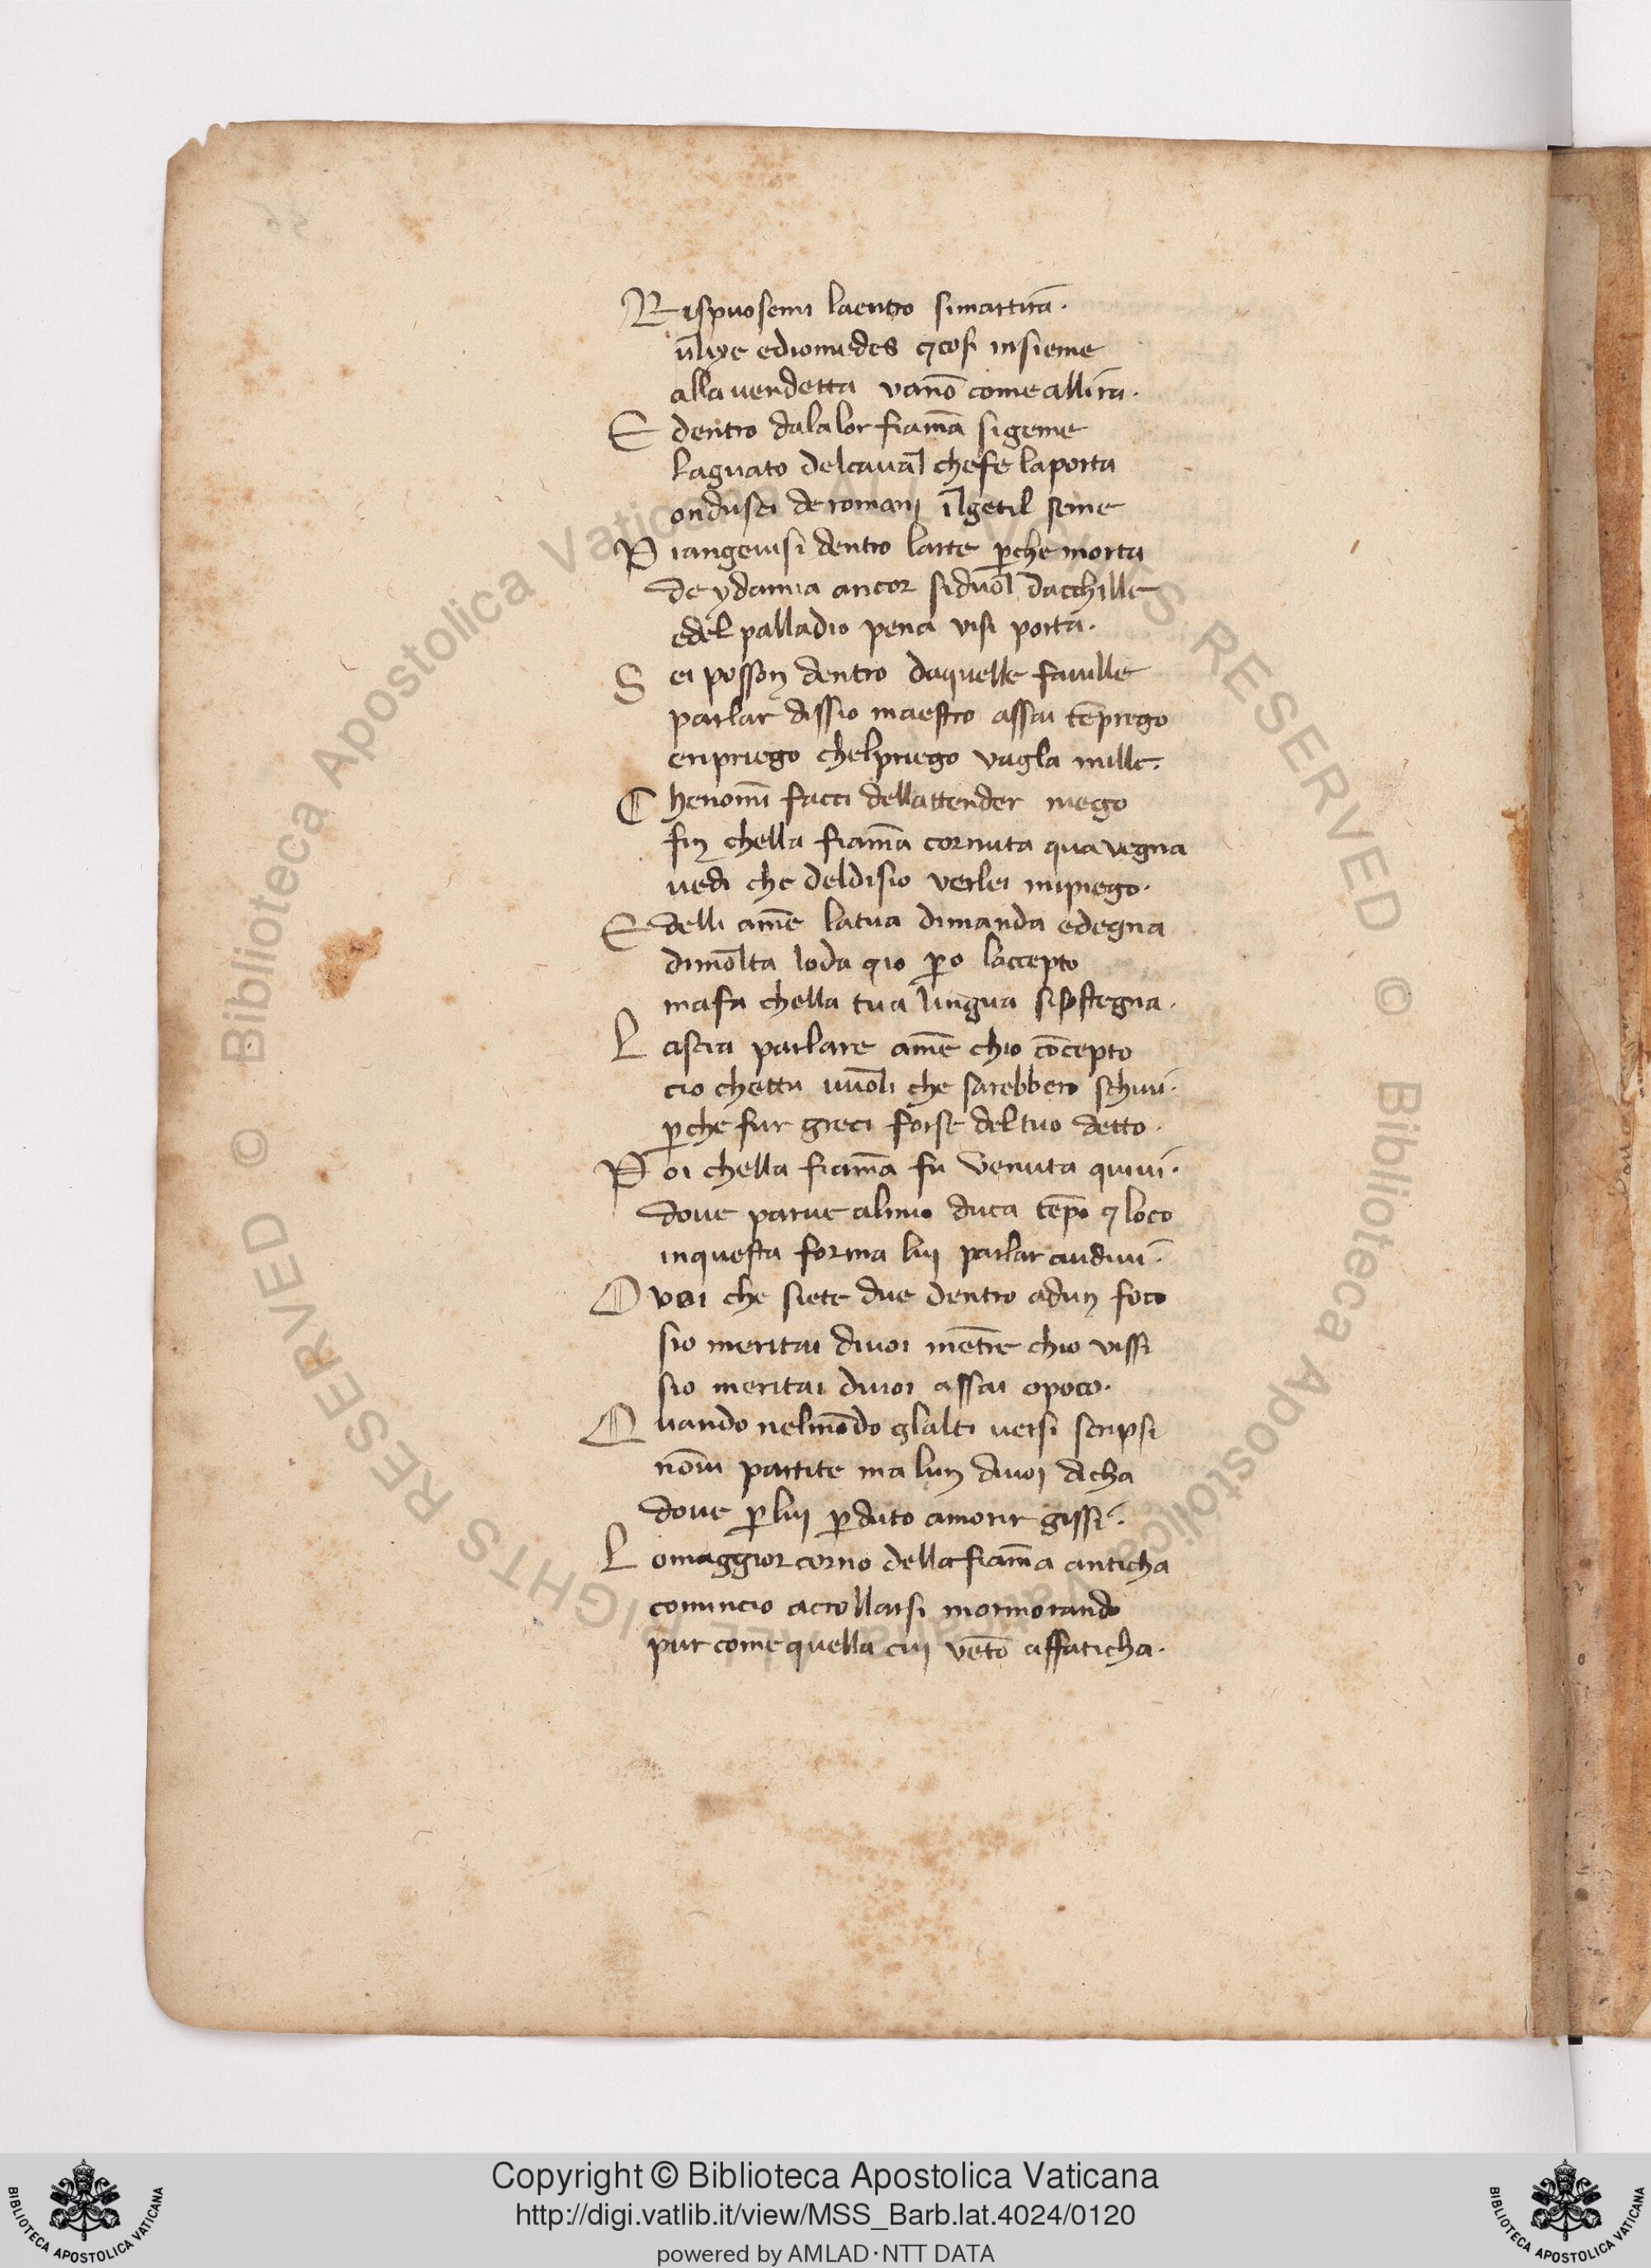 Rispuosemi laentro simartira.
ulixe ediomedes ⁊cosi insieme
alla uendetta vanō come allira.
E dentro dalalor fiam̄a sigeme
Laguato delcaual chefe laporta
ondusci de romani ilgētil seme
Piangeuisi dentro larte ꝑche morta
deydamia ancor siduol dacchille
edel palladio pena visi porta.
Sei posson dentro daquelle fauille
parlar dissio maestro assai tēprego
eripriego chelpriego vagla mille.
Chenomi facci dellattender niego
fin chella fiam̄a cornuta qua vegna
uedi che deldisio verlei mipiego.
Edelli amē latua dimanda edegna
dimolta loda ⁊io ꝑo laccepto
mafa chella tua lingua sisostegna.
Lascia parlare amē chio cōcepto
cio chettu uuoli che sarebbero schiui.
ꝑche fur greci forse deltuo detto.
Poi chella fiam̄a fu venuta quiui.
doue parue almio duca tēpo ⁊ loco
inquesta forma lui parlar audiui.
O voi che siete due dentro adun foco
sio meritai diuoi mētre chio vissi
sio meritai diuoi assai opoco.
Quando nelmōdo glalti uersi scripsi
nōui partite ma lun diuoi dicha
doue ꝑlui ꝑduto amorir gissi.
Lomaggior corno della fiam̄a anticha
comincio acrollarsi mormorando
pur come quella cui vēto affaticha.
Copyright © Biblioteca Apostolica Vaticana
http://digi.vatlib.it/view/MSS_Barb.lat.4024/0120
powered by AMLAD·NTT DATA
BIBLIOTECA APOSTOLICA VATICANA
BIBLIOTECA APOSTOLICA VATICANA
© Biblioteca Apostolica Vaticana ALL RIGHTS RESERVED
© Biblioteca Apostolica Vaticana ALL RIGHTS RESERVED